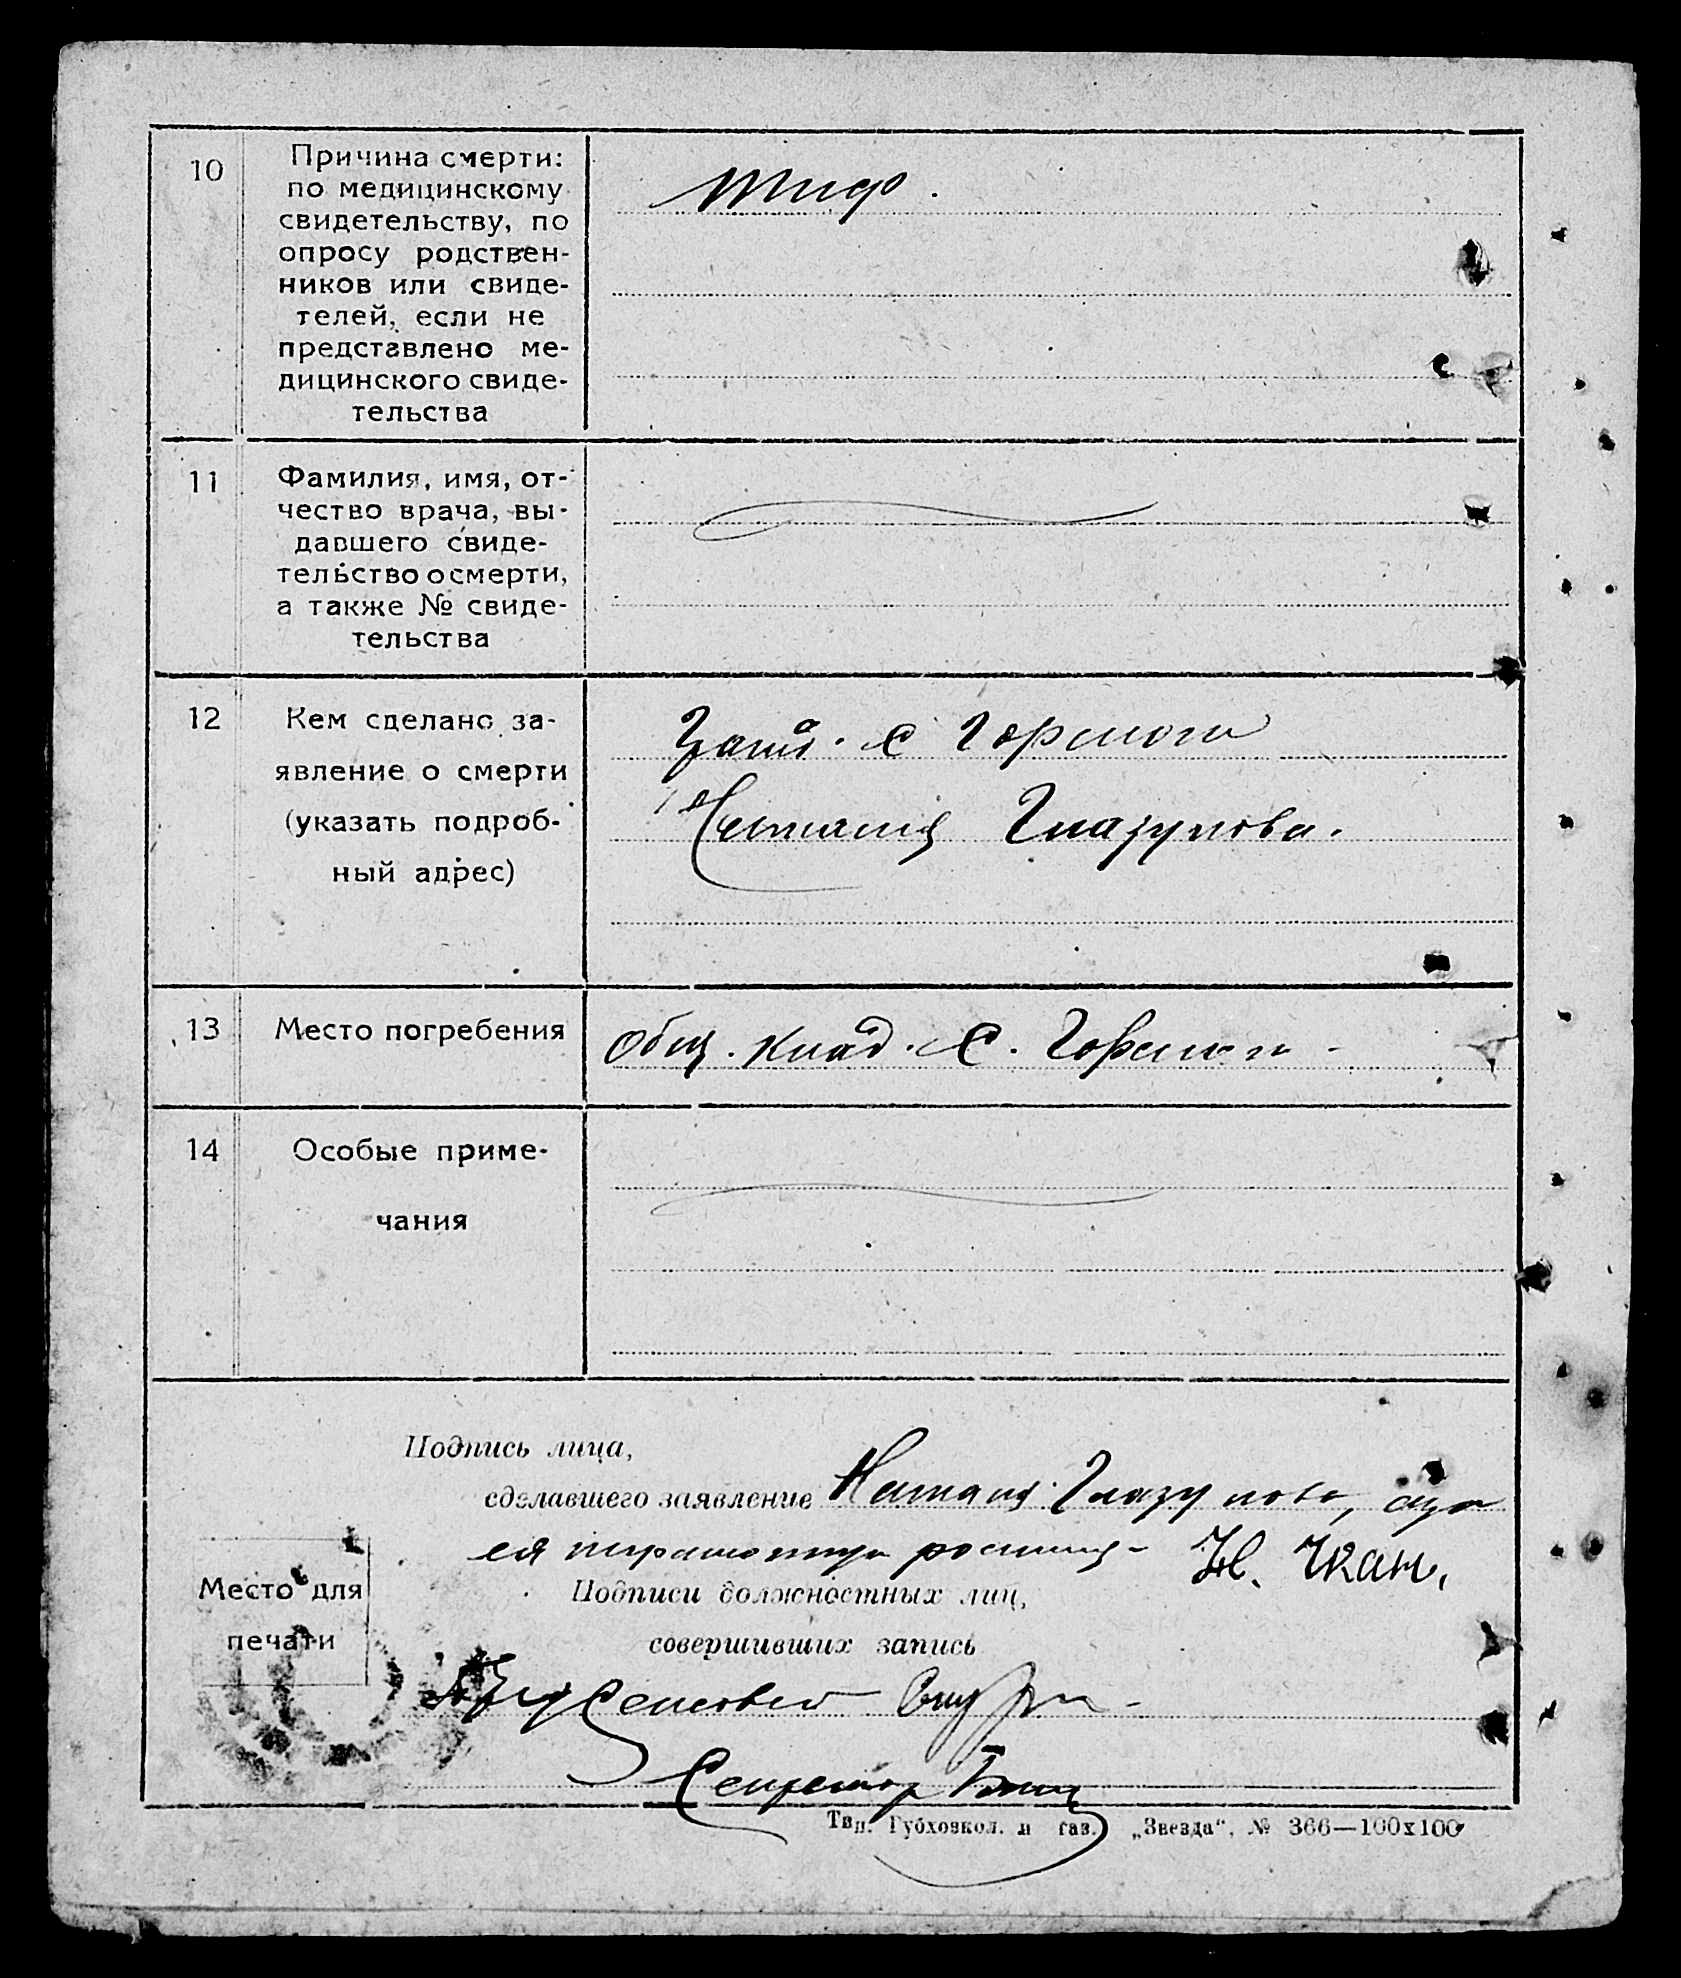 10
Причина смерти:
по медицинскому
свидетельству, по
опросу родствен-
ников или свиде-
телей, если не
представлено ме-
дицинского свиде-
тельства
тиф.
11
Фамилия, имя, от-
чество врача, вы-
давшего свиде-
тельство о смерти,
а также № свиде-
тельства
12
Кем сделано за-
явление о смерти
(указать подроб-
ный адрес)
Граж. с
Наталия Глазунова.
13
Место погребения
Общ. клад. с.
14
Особые приме-
чания
Подпись лица,
сделавшего заявление Наталия Глазунова,
Подписи должностных лиц,
совершивших запись
Место для
печати
Секретарь
Тип. Губхозкол. и газ. „Звезда“, № 366—100х100